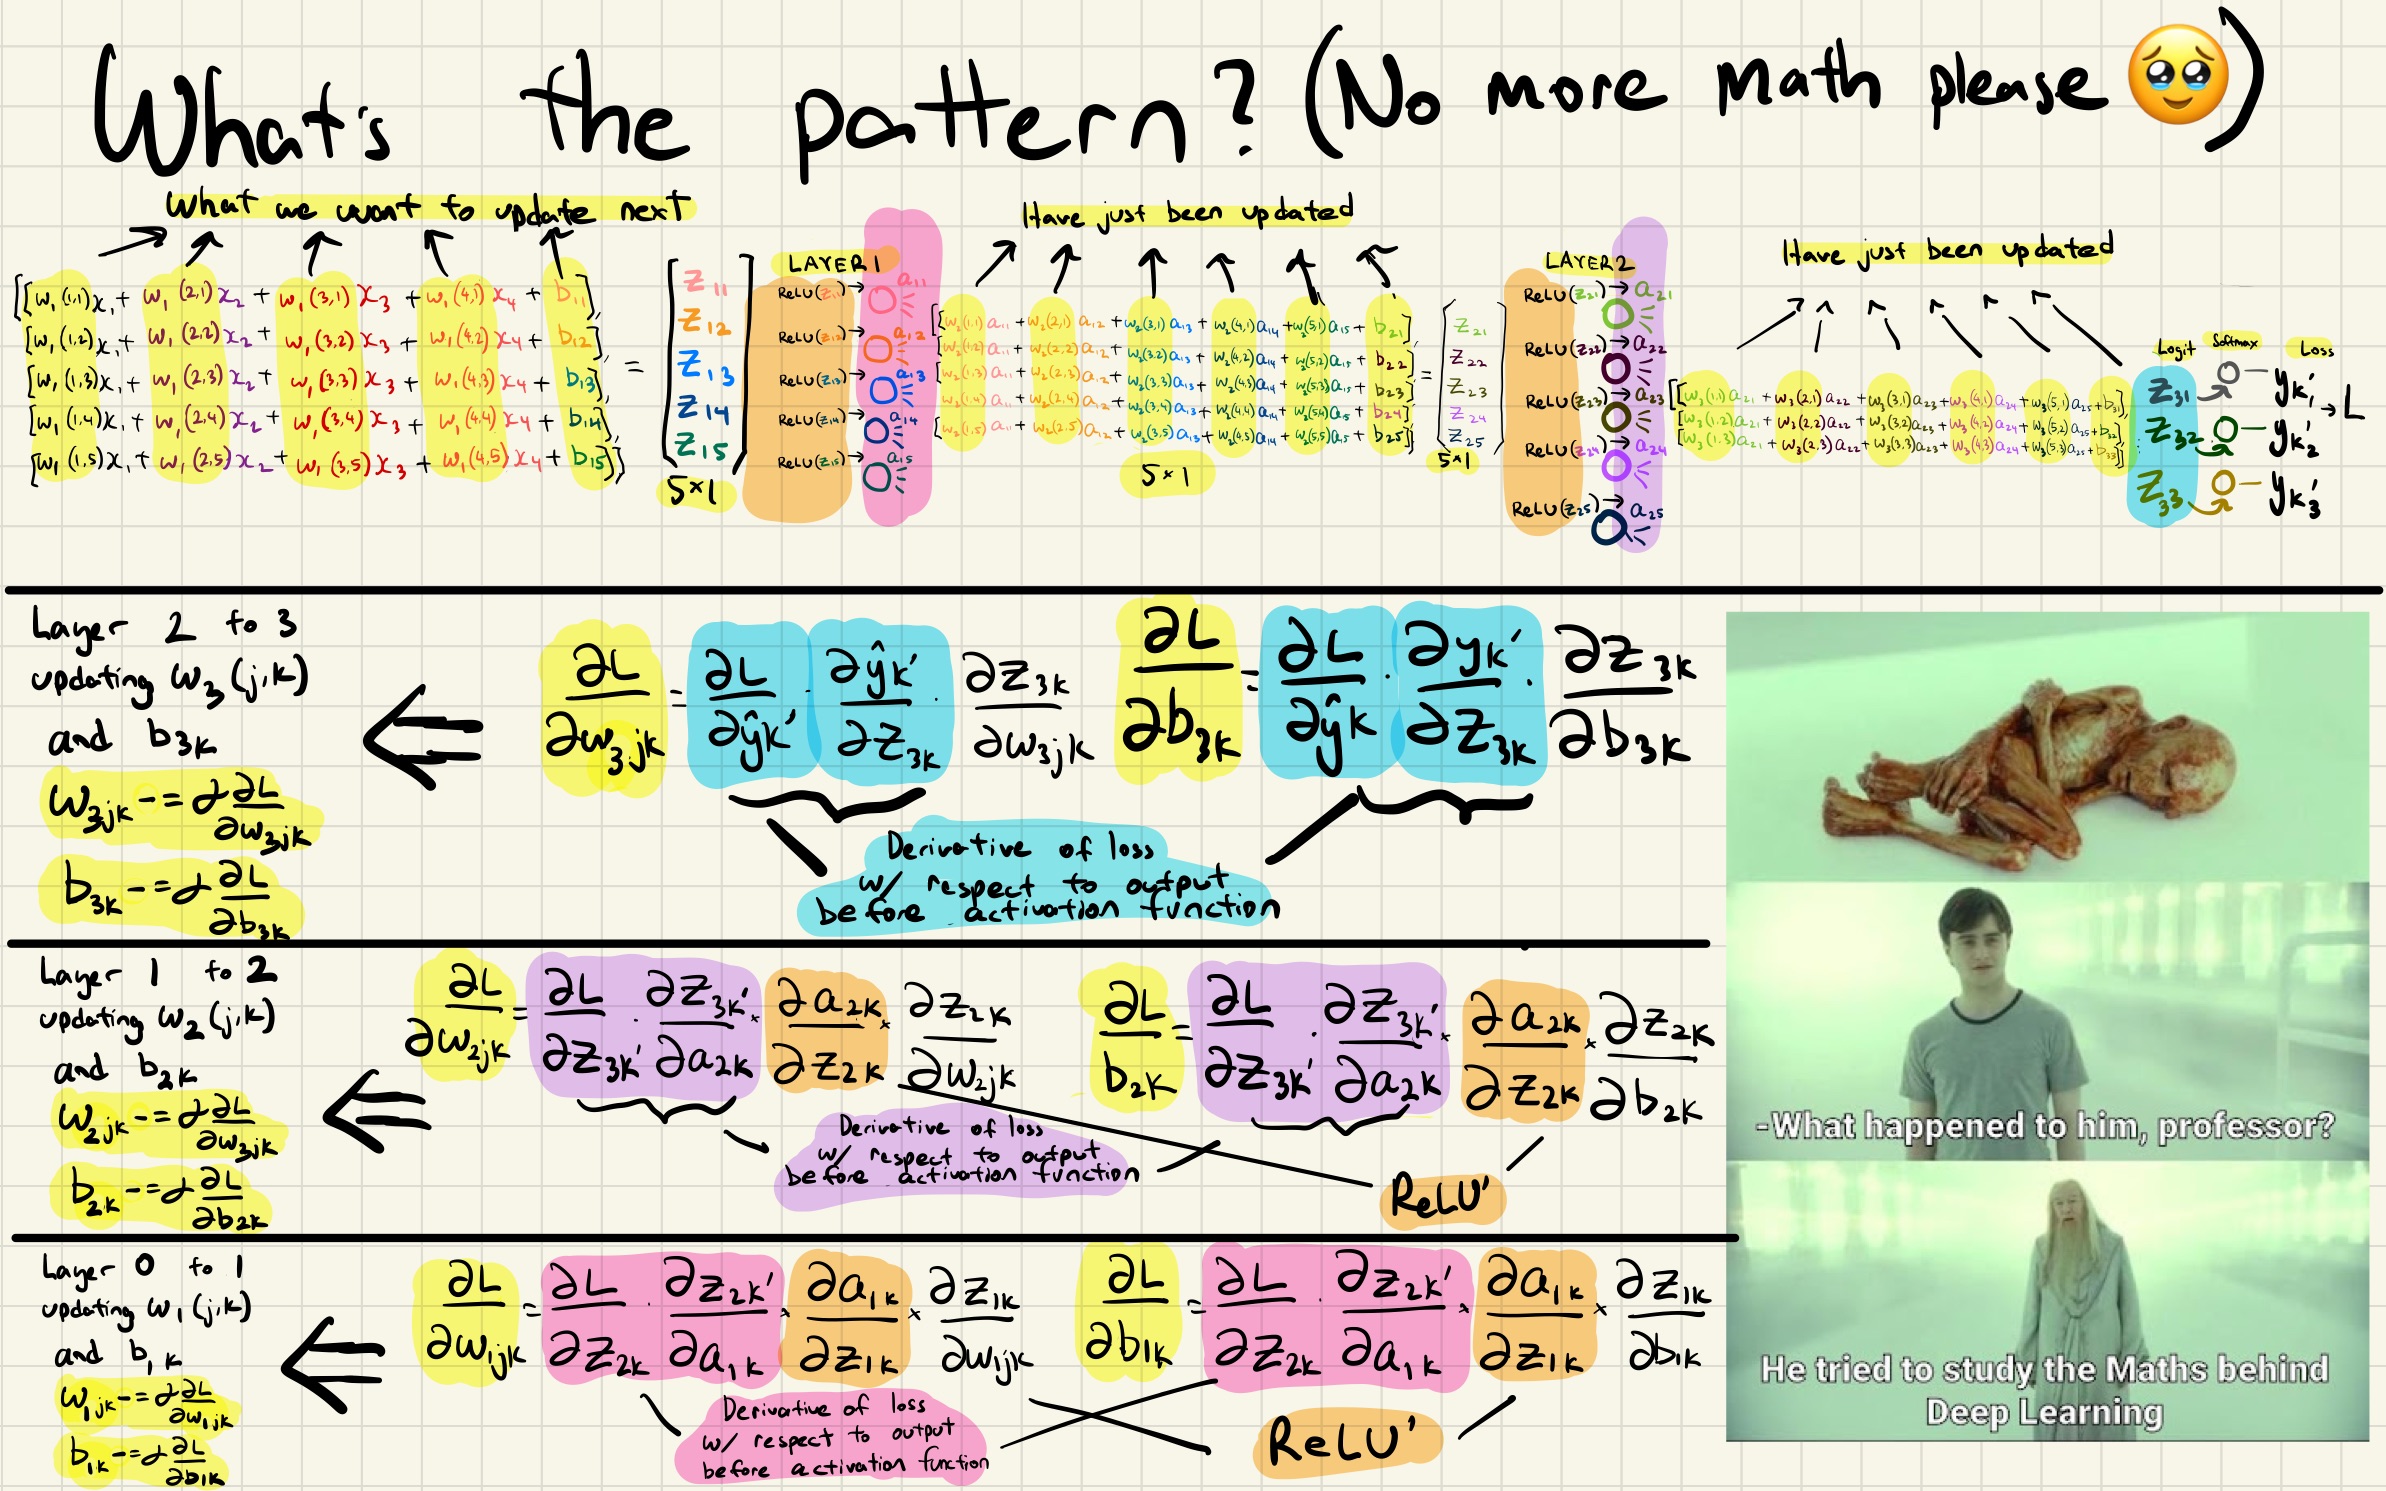 What's the pattern? (No more math please 🥹)
What we want to update next
Have just been updated
Have just been updated
[[w₁(1,1)x₁ + w₁(2,1)x₂ + w₁(3,1)x₃ + w₁(4,1)x₄ + b₁₁],
[w₁(1,2)x₁ + w₁(2,2)x₂ + w₁(3,2)x₃ + w₁(4,2)x₄ + b₁₂],
[w₁(1,3)x₁ + w₁(2,3)x₂ + w₁(3,3)x₃ + w₁(4,3)x₄ + b₁₃],
[w₁(1,4)x₁ + w₁(2,4)x₂ + w₁(3,4)x₃ + w₁(4,4)x₄ + b₁₄],
[w₁(1,5)x₁ + w₁(2,5)x₂ + w₁(3,5)x₃ + w₁(4,5)x₄ + b₁₅]]
=
z₁₁
z₁₂
z₁₃
z₁₄
z₁₅
5×1
LAYER 1
ReLU(z₁₁) → a₁₁
ReLU(z₁₂) → a₁₂
ReLU(z₁₃) → a₁₃
ReLU(z₁₄) → a₁₄
ReLU(z₁₅) → a₁₅
[[w₂(1,1)a₁₁ + w₂(2,1)a₁₂ + w₂(3,1)a₁₃ + w₂(4,1)a₁₄ + w₂(5,1)a₁₅ + b₂₁]
[w₂(1,2)a₁₁ + w₂(2,2)a₁₂ + w₂(3,2)a₁₃ + w₂(4,2)a₁₄ + w₂(5,2)a₁₅ + b₂₂]
[w₂(1,3)a₁₁ + w₂(2,3)a₁₂ + w₂(3,3)a₁₃ + w₂(4,3)a₁₄ + w₂(5,3)a₁₅ + b₂₃]
[w₂(1,4)a₁₁ + w₂(2,4)a₁₂ + w₂(3,4)a₁₃ + w₂(4,4)a₁₄ + w₂(5,4)a₁₅ + b₂₄]
[w₂(1,5)a₁₁ + w₂(2,5)a₁₂ + w₂(3,5)a₁₃ + w₂(4,5)a₁₄ + w₂(5,5)a₁₅ + b₂₅]]
5×1
=
z₂₁
z₂₂
z₂₃
z₂₄
z₂₅
5×1
LAYER 2
ReLU(z₂₁) → a₂₁
ReLU(z₂₂) → a₂₂
ReLU(z₂₃) → a₂₃
ReLU(z₂₄) → a₂₄
ReLU(z₂₅) → a₂₅
[[w₃(1,1)a₂₁ + w₃(2,1)a₂₂ + w₃(3,1)a₂₃ + w₃(4,1)a₂₄ + w₃(5,1)a₂₅ + b₃₁],
[w₃(1,2)a₂₁ + w₃(2,2)a₂₂ + w₃(3,2)a₂₃ + w₃(4,2)a₂₄ + w₃(5,2)a₂₅ + b₃₂]
[w₃(1,3)a₂₁ + w₃(2,3)a₂₂ + w₃(3,3)a₂₃ + w₃(4,3)a₂₄ + w₃(5,3)a₂₅ + b₃₃]]
Logit Softmax Loss
z₃₁ yk₁′ → L
z₃₂ yk₂′
z₃₃ yk₃′
Layer 2 to 3
updating w₃(j,k)
and b₃k
w₃jk -= α ∂L/∂w₃jk
b₃k -= α ∂L/∂b₃k
∂L/∂w₃jk = ∂L/∂ŷk′ · ∂ŷk′/∂z₃k · ∂z₃k/∂w₃jk
∂L/∂b₃k = ∂L/∂ŷk · ∂yk′/∂z₃k · ∂z₃k/∂b₃k
Derivative of loss
w/ respect to output
before activation function
Layer 1 to 2
updating w₂(j,k)
and b₂k
w₂jk -= α ∂L/∂w₃jk
b₂k -= α ∂L/∂b₂k
∂L/∂w₂jk = ∂L/∂z₃k′ · ∂z₃k′/∂a₂k × ∂a₂k/∂z₂k × ∂z₂k/∂w₂jk
∂L/b₂k = ∂L/∂z₃k′ · ∂z₃k′/∂a₂k × ∂a₂k/∂z₂k × ∂z₂k/∂b₂k
Derivative of loss
w/ respect to output
before activation function
ReLU'
Layer 0 to 1
updating w₁(j,k)
and b₁k
w₁jk -= α ∂L/∂w₁jk
b₁k -= α ∂L/∂b₁k
∂L/∂w₁jk = ∂L/∂z₂k · ∂z₂k′/∂a₁k × ∂a₁k/∂z₁k × ∂z₁k/∂w₁jk
∂L/∂b₁k = ∂L/∂z₂k · ∂z₂k′/∂a₁k × ∂a₁k/∂z₁k × ∂z₁k/∂b₁k
Derivative of loss
w/ respect to output
before activation function
ReLU'
-What happened to him, professor?
He tried to study the Maths behind
Deep Learning